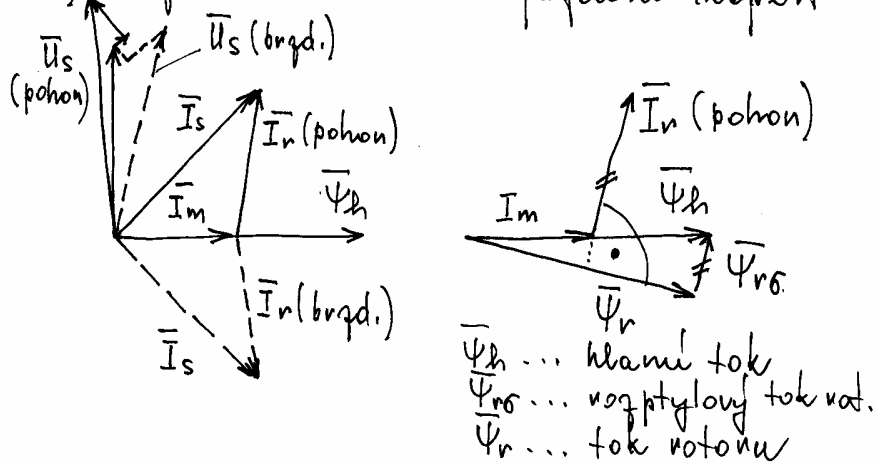 U̅s
(pohon)
U̅s (brzd.)
I̅s
I̅r (pohon)
I̅m
Ψ̅h
I̅r (brzd.)
I̅s
I̅r (pohon)
Im
Ψ̅h
Ψ̅rσ
Ψ̅r
Ψ̅h ... hlavní tok
Ψ̅rσ ... rozptylový tok rot.
Ψ̅r ... tok rotoru